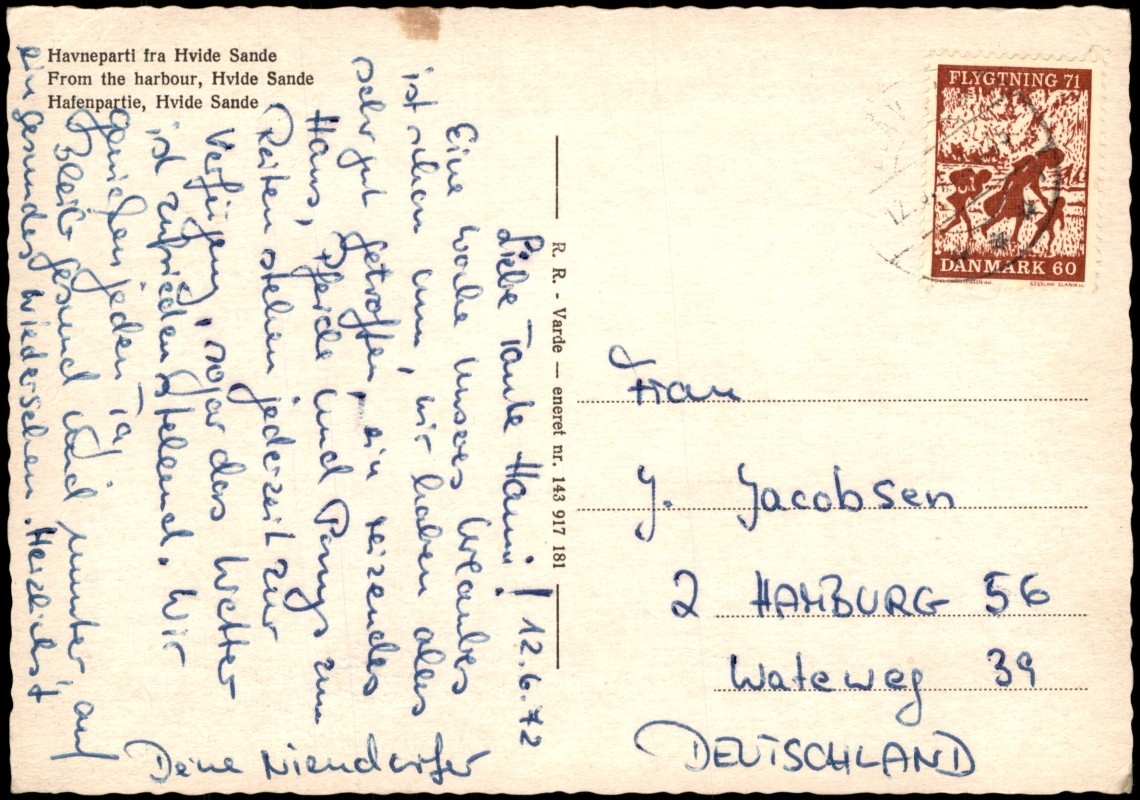 Havneparti fra Hvide Sande
From the harbour, Hvide Sande
Hafenpartie, Hvide Sande
Liebe Tante Hanni! 12.6.72
Eine Woche unseres Urlaubes
ist schon um, wir haben alles
sehr gut getroffen, ein reizendes
Haus, Pferde und Ponys zum
Reiten stehen jederzeit zur
Verfügung, sogar das Wetter
ist zufriedenstellend. Wir
genießen jeden Tag.
Bleib gesund und munter, auf
ein gesundes Wiedersehen. Herzlichst
Deine Niendorfer
R. R. - Varde — eneret nr. 143 917 181
FLYGTNING 71
DANMARK 60
CZESLAW SLANIA sc.
Frau
J. Jacobsen
2 HAMBURG 56
Wateweg 39
DEUTSCHLAND